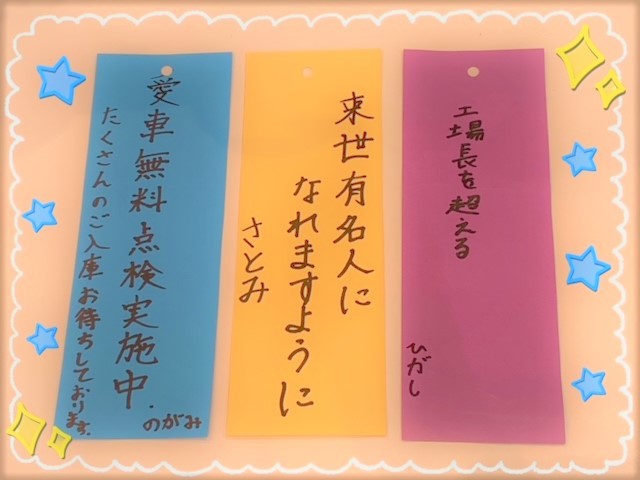 工場長を超える
ひがし
来世有名人に
なれますように
さとみ
愛車無料点検実施中.
たくさんのご入庫お待ちしております.
のがみ